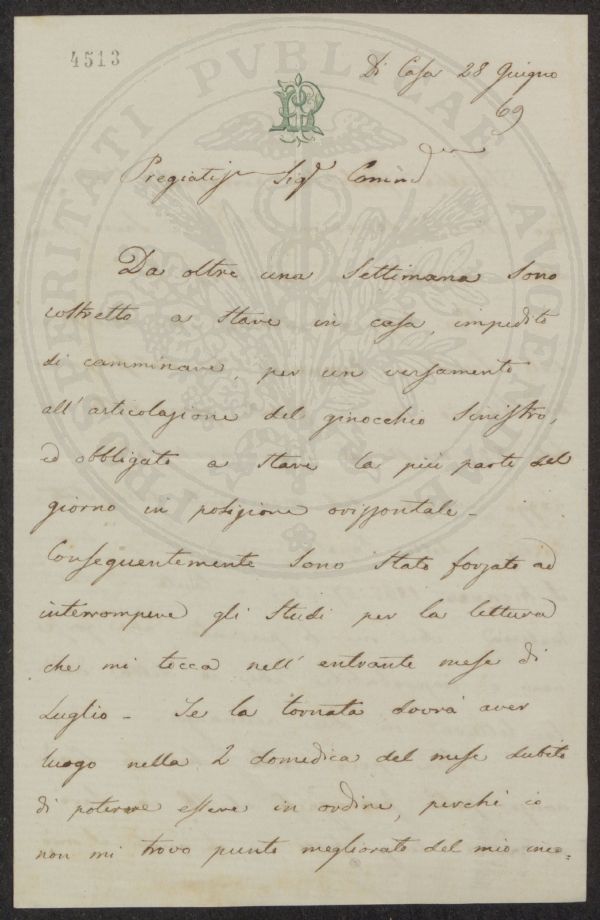 4513
PR
Di Casa 28 Giugno
69
Pregiatis. Sig.r Comend
Da oltre una settimana sono
costretto a stare in casa, impedito
di camminare, per un versamento
all'articolazione del ginocchio sinistro,
ed obbligato a stare la più parte del
giorno in posizione orizzontale -
Conseguentemente sono stato forzato ad
interrompere gli studi per la lettura
che mi tocca nell'entrante mese di
Luglio - Se la tornata dovrà aver
luogo nella 2 domedica del mese dubito
di poterere essere in ordine, perchè io
non mi trovo punto megliorato del mio inco=
VERITATI PVBLICAE AVGENDAE